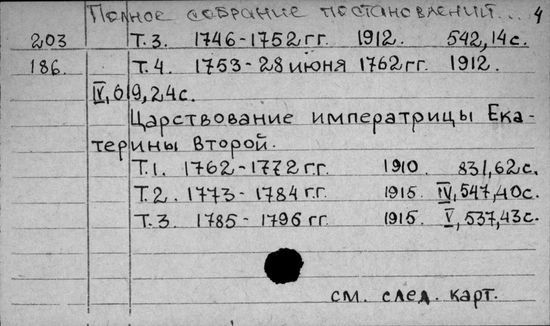 Полное собрание постановлений... 4
203 Т. 3. 1746-1752 гг. 1912. 542, 14 с.
186. Т. 4. 1753-28 июня 1762 гг. 1912.
IV, 619, 24 с.
Царствование императрицы Ека-
терины Второй.
Т. 1. 1762-1772 гг. 1910. 831, 62 с.
Т. 2. 1773-1784 гг. 1915. IV, 547, 40 с.
Т. 3 1785-1796 гг. 1915. V, 537, 43 с.
см. след. карт.